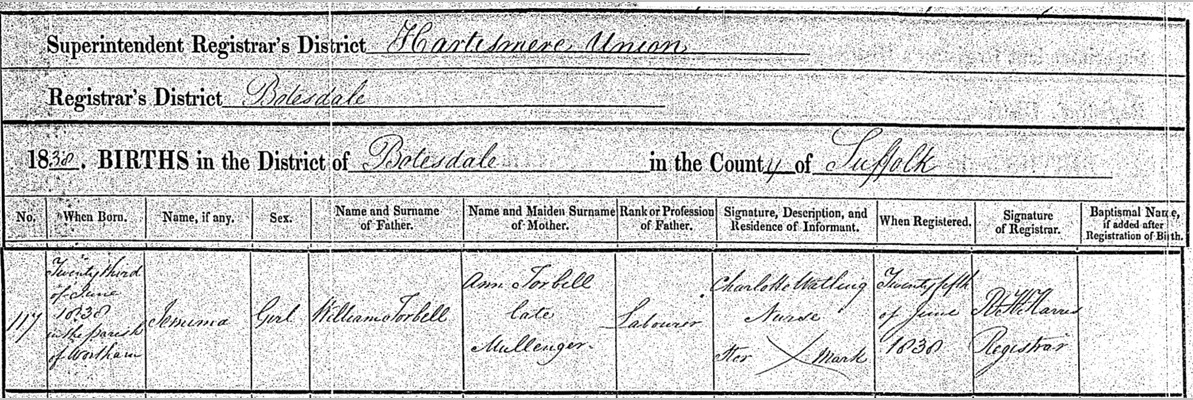 Superintendent Registrar's District Hartismere Union
Registrar's District Botesdale
1838. BIRTHS in the District of Botesdale in the County of Suffolk
No. When Born. Name, if any. Sex. Name and Surname of Father. Name and Maiden Surname of Mother. Rank or Profession of Father. Signature, Description, and Residence of Informant. When Registered. Signature of Registrar. Baptismal Name, if added after Registration of Birth.
117
Twenty third
of June
1838
in the parish
of Wortham
Jemima
Girl
William Torbell
Ann Torbell
late
Mullenger
Labourer
Charlotte Watling
Nurse
Her X Mark
Twenty fifth
of June
1838
Harris
Registrar